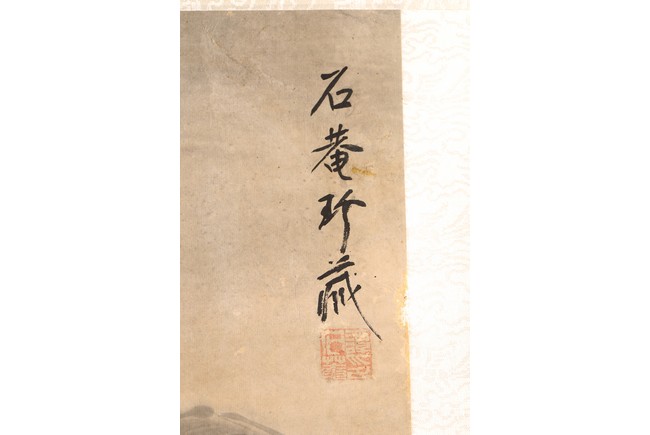 石菴珍藏